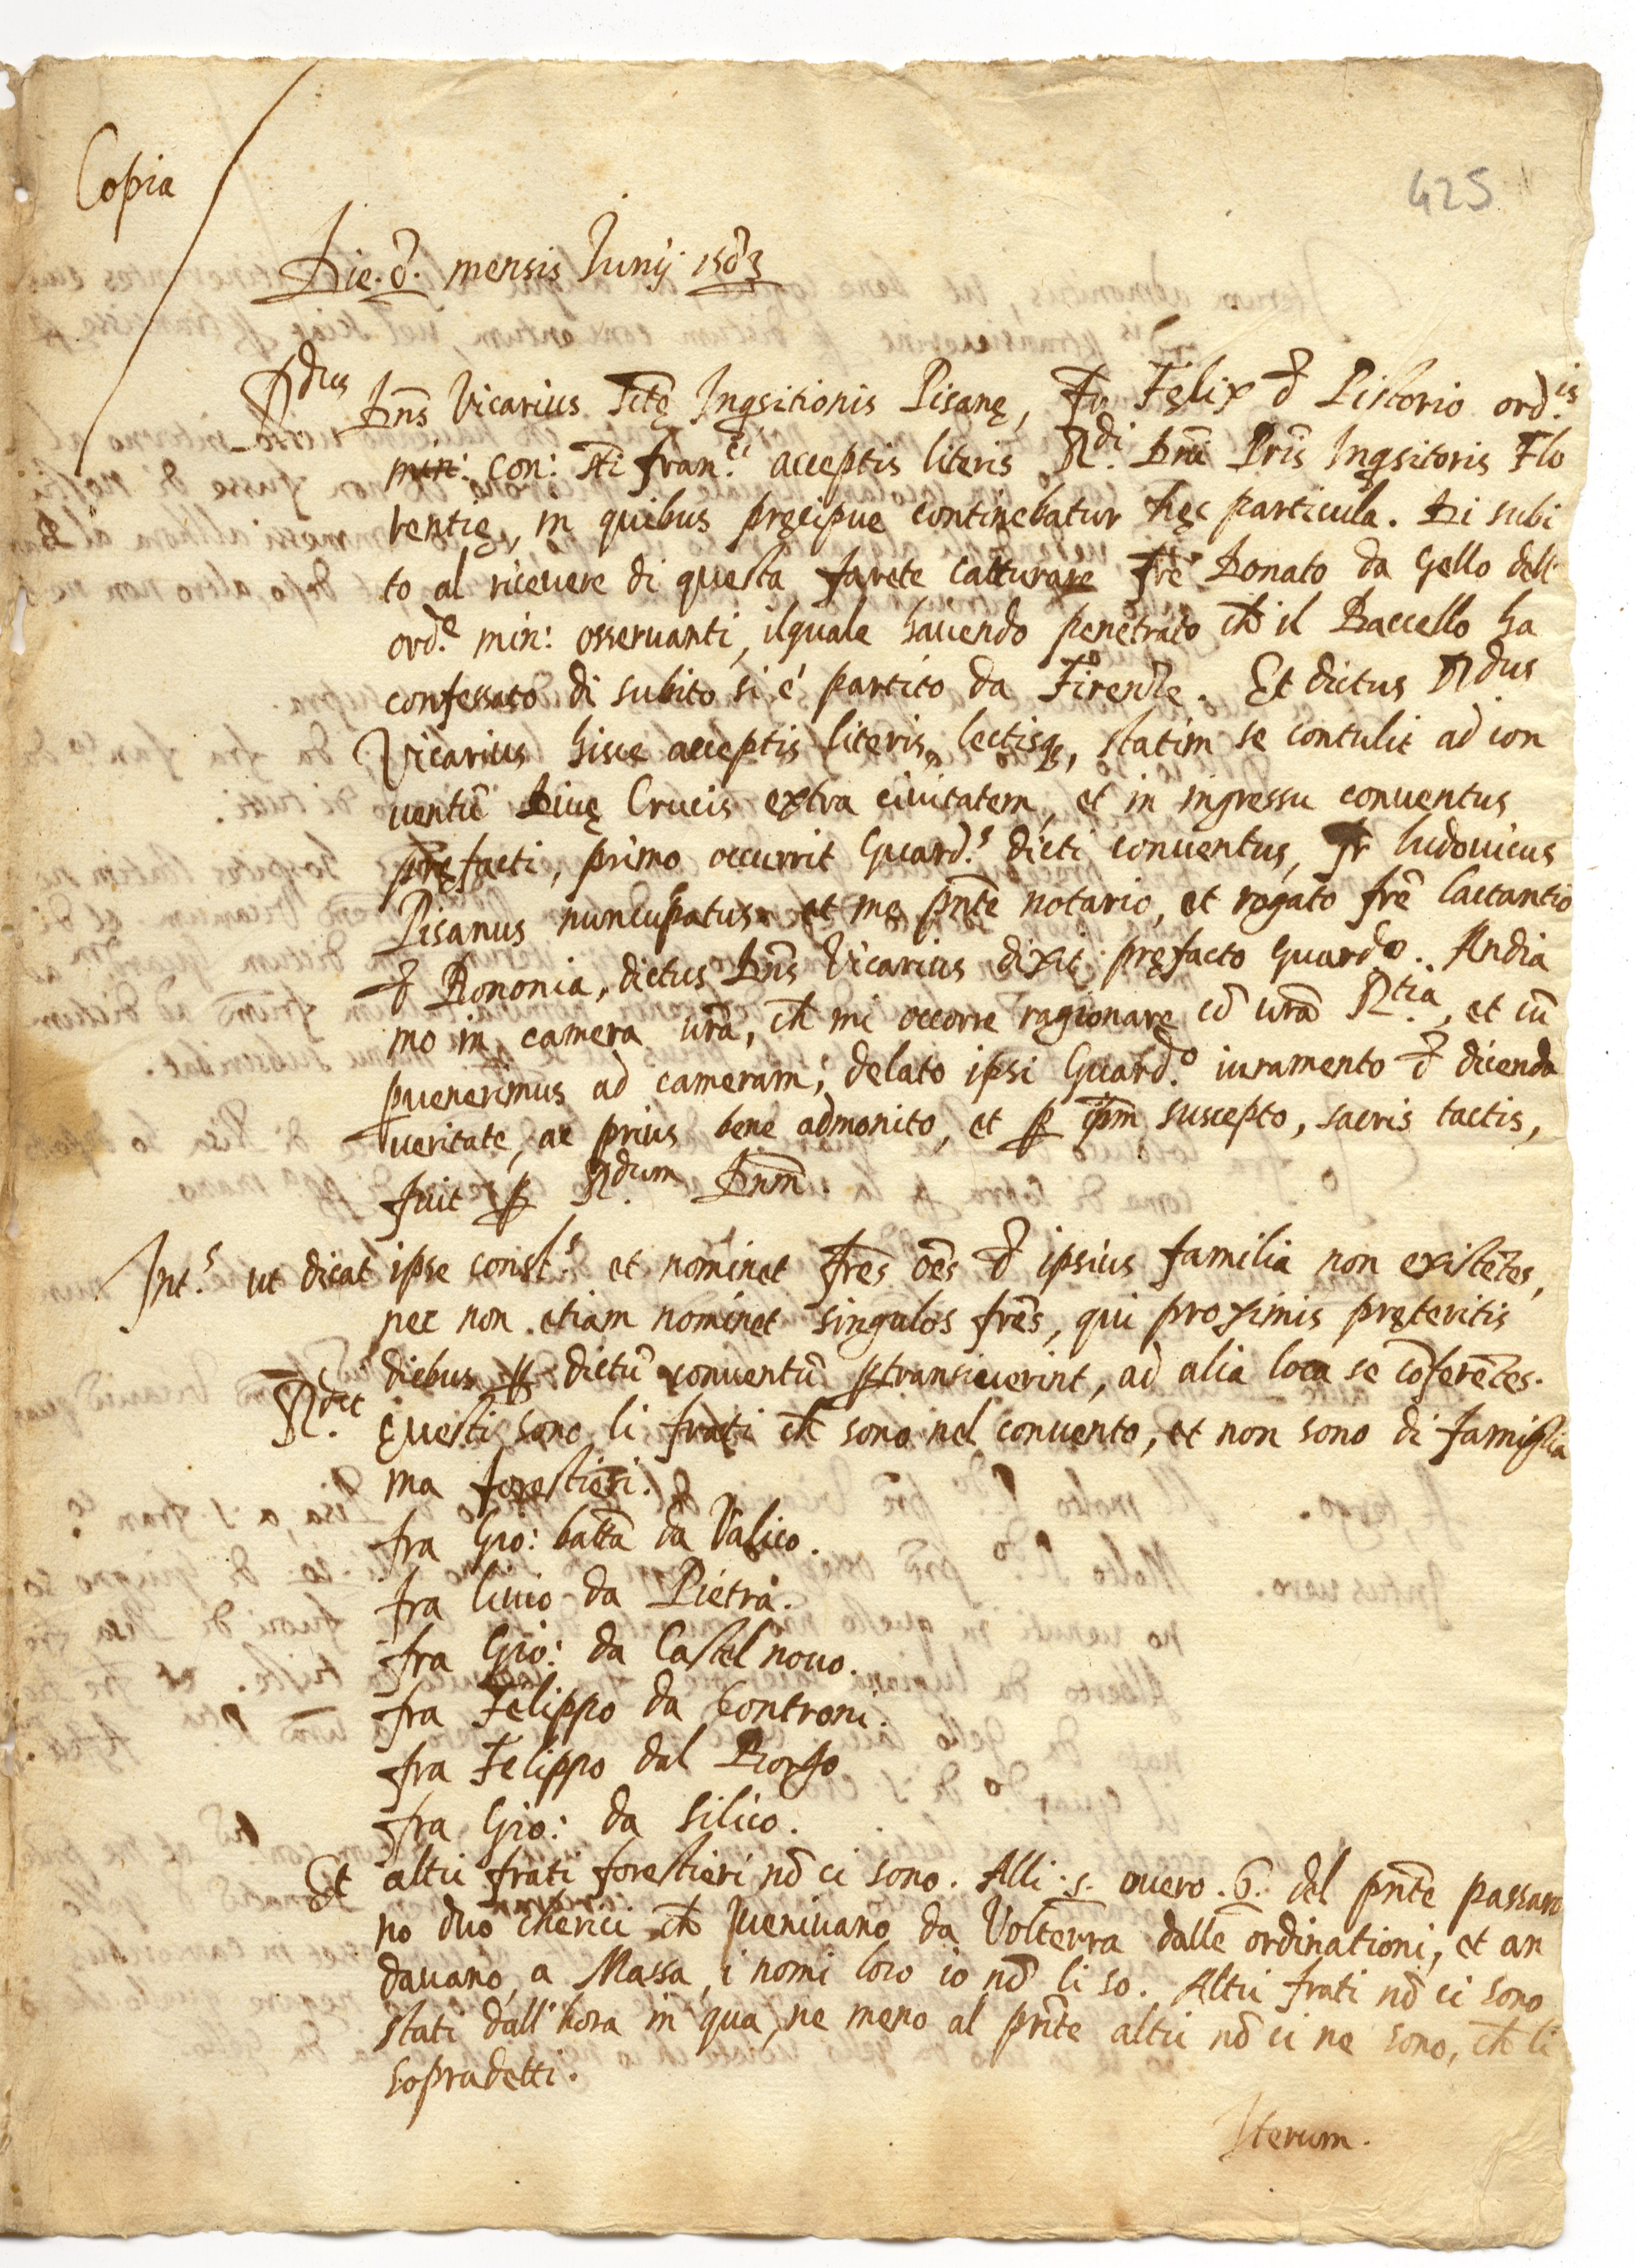 Copia
425
Die. 8. mensis Junij 1583
R.dus Dns̄ Vicarius Stę̄ Inqsitionis Pisanę, Fr Fęlix đ Pistorio ord.is
min: con: Sti fran.ci acceptis literis R.di Dnī Prīs Inqsitoris Flo
rentię, in quibus pręcipue continebatur hęc particula. Di subi
to al ricevere di questa farete catturare frē Donato da Gello dell'
ord.e min: osservanti, ilquale havendo penetrato ch̄ il Baccello ha
confessato di subito si é partito da Firenze. Et dictus R.dus
Vicarius hisce acceptis literis, lectisq, statim se contulit ad con
ventū Divę Crucis extra civitatem, et in ingressu conventus
pręfacti, primo occurrit Guard.s dicti conventus, fr ludovicus
Pisanus nuncupatus et me pn̄te notario, et rogato frē lactantio
đ Bononia, dictus Dns̄ Vicarius dixit pręfacto Guard.o. Andia
mo in camera vrā, ch̄ mi occorre ragionare cō vrā R.tia, et cū
pvenerimus ad cameram, delato ipsi Guard.o iuramento đ dicenda
veritate, ac prius bene admonito, et p ipm̄ suscepto, sacris tactis,
fuit p R.dum Dnm̄.
Int.s ut dicat ipse const.s et nominet frēs oēs đ ipsius familia non existētes,
nec non etiam nominet singulos frēs, qui proximis pręteritis
diebus p dictū conventū ptransiverint, ad alia loca se cōferētes.
R.dit Questi sono li frati ch̄ sono nel convento, et non sono di famiglia
ma forestieri.
fra Gio: battā da Valico.
fra livio da Pietra.
fra Gio: da Castel novo.
fra Felippo da Controni.
fra Felippo dal Borgo
fra Gio: da Silico.
Et altri frati forestieri nō ci sono. Alli .5. overo .6. del pn̄te passaro
no duo cherici ch̄ venivano da Volterra dalle ordinationi, et an
davano, a Massa, i nomi loro io nō li so. Altri frati nō ci sono
stati dall'hora in qua, ne meno al pn̄te altri nō ci ne sono, ch̄ li
sopradetti.
Iterum.